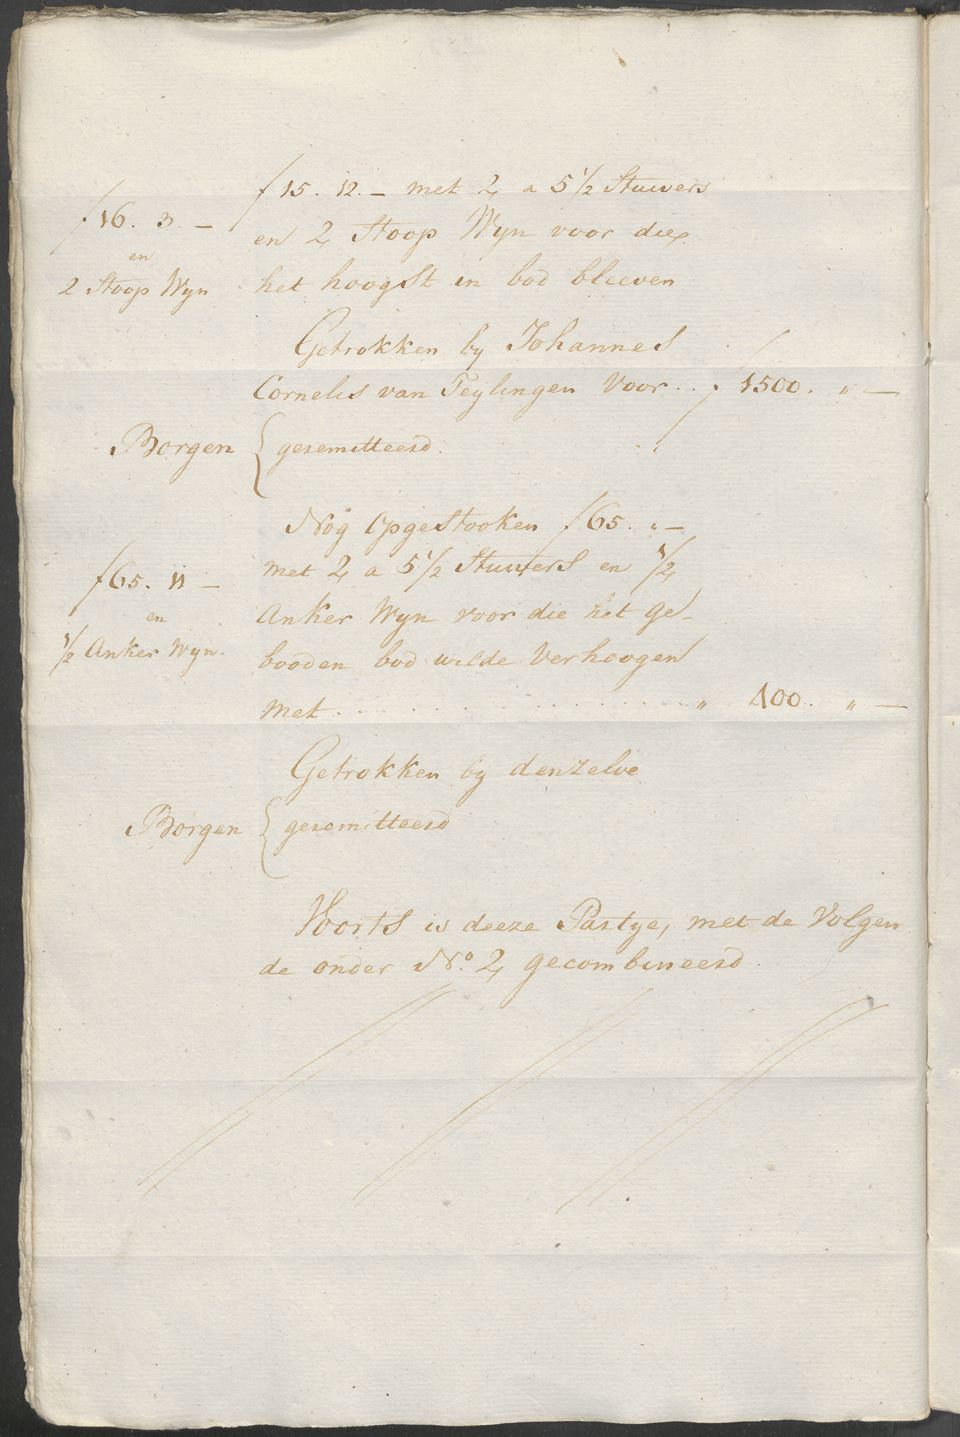 f 15. 12. – met 2 a 5 1/2 Stuivers
f 16. 3 –
en 2 Stoop Wyn voor die
en
2 Stoop Wyn
het hoogst in bod bleeven
Getrokken by Johannes
Cornelis van Teylingen voor . . f 1500. " —
Borgen { geremitteerd.
Nog opgestooken f 65. " –
met 2 a 5 1/2 Stuivers en 1/2
f 65. 11 –
en
1/2 Anker Wyn.
Anker Wyn voor die het ge-
booden bod wilde verhoogen
met . . . . . . . . . . " 100. " —
Getrokken by denzelve
Borgen { geremitteerd
Voorts is deeze Partye, met de Volgen
de onder No. 2 gecombineerd.